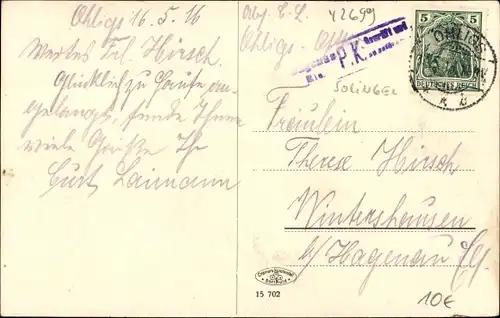 Ohligs 16.5.16
Wertes Frl. Hirsch.
Glücklich zu Hause an-
gelangt, sende Ihnen
viele Grüße Ihr
Curt Laimann
42699
Abs. C. L.
Ohligs
P.K.
SOLINGEN
5 5
DEUTSCHES REICH
OHLIGS
Fräulein
Therese Hirsch
Wintershausen
b/Hagenau
15 702
10€